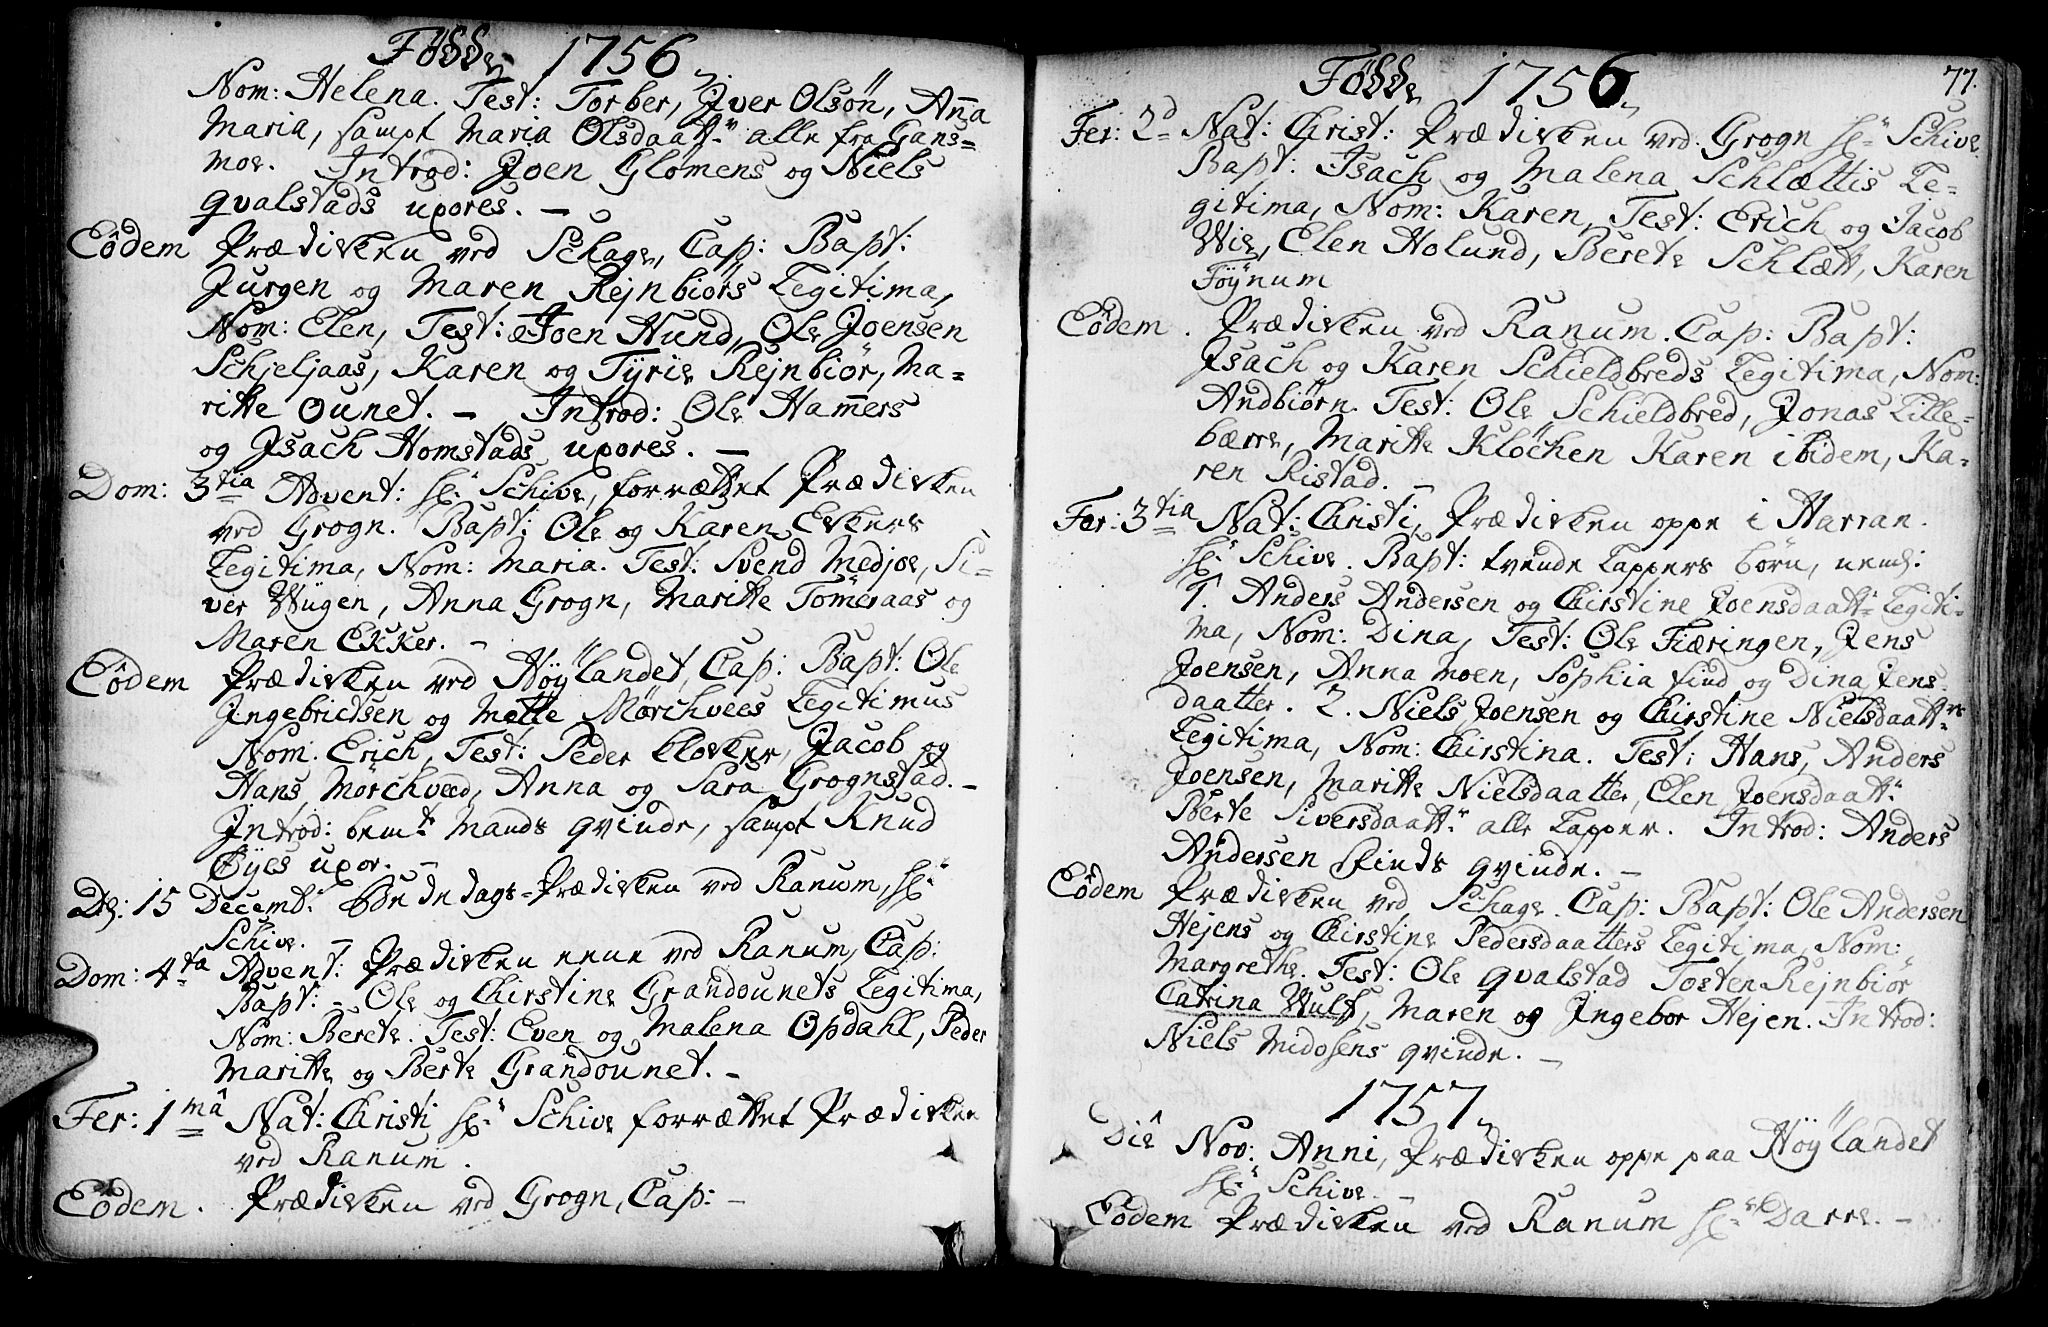 Födde 1756
Nom: Helena. Test: Torber, Iver Olsön, Aña
Maria, sampt Maria Olsdaattr alle fra Gans=
moe. Introd: Joen Glömens og Niels
qvalstads uxores. —
Eôdem Prædicken ved Schage, Cap: Bapt:
Jurgen og Maren Rejnbiörs Legitima,
Nom: Elen, Test: Joen Hund, Ole Joensen
Schjeljaas, Karen og Tyrie Rejnbiör, Ma=
ritte Ounet. — Introd: Ole Hamers
og Isach Homstads uxores. —
Dom: 3tia Advent: Hr Schive, forrættet Prædicken
ved Grogn. Bapt: Ole og Karen Eckers
Legitima, Nom: Maria. Test: Svend Medjoe, Si=
ver Wügen, Anna Grogn, Maritte Tömeraas og
Maren Ekker. —
Eôdem Prædicken ved Höylandet, Cap: Bapt: Ole
Ingebrictsen og Mette Mörchvees Legitimus
Nom: Erich, Test: Peder Klocker, Jacob og
Hans Mörchveed, Anna og Sara Grognstad. —
Introd: bemte Mands qvinde, sampt Knud
Öyes uxor. —
D: 15 Decembr Bededags=Prædicken ved Ranum, Hr
Schive. —
Dom: 4ta Advent: Prædicken nene ved Ranum, Cap:
Bapt: — Ole og Chirstine Grandounets Legitima,
Nom: Berete. Test: Even og Malena Opdahl, Peder
Maritte og Berte Grandounet. —
Fer: 1mâ Nat: Christi Hr Schive forrættet Prædicken
ved Ranum.
Eôdem. Prædicken ved Grogn, Cap: —
Födde 1756 77.
Fer: 2d Nat: Christ: Prædicken ved Grogn Hr Schive
Bapt: Isach og Malena Schlættis Le=
gitima, Nom: Karen, Test: Erich og Jacob
Wie, Elen Holund, Berete Schlætt, Karen
Föynum
Eôdem. Prædicken ved Ranum. Cap: Bapt:
Isach og Karen Schieldbreds Legitima, Nom:
Andbiörn. Test: Ole Schieldbred, Jonas Lille=
bærre, Maritte Klöchen Karen ibidem, Ka=
ren Ristad. —
Fer: 3tia Nat: Christi, Prædicken oppe i Harran.
Hr Schive. Bapt: tvende Lappers börn, neml:
1. Anders Andersen og Chirstine Joensdaattr Legiti=
ma, Nom: Dina, Test: Ole Fiæringen, Jens
Joensen, Anna Moen, Sophia find og Dina Jens
daatter. 2. Niels Joensen og Chirstine Nielsdaattrs
Legitima, Nom: Chirstina. Test: Hans, Anders
Joensen, Maritte Nielsdaatter, Elen Joensdaattr
Berte Siversdaattr alle Lapper. Introd: Anders
Andersen Finds qvinde. —
Eôdem Prædicken ved Schage. Cap: Bapt: Ole Andersen
Hejens og Chirstine Pedersdaatters Legitima, Nom:
Margrethe. Test: Ole qvalstad Tosten Rejnbiör
Catrina Wulf, Maren og Ingebor Hejen. Introd:
Niels Midosens qvinde. —
1757
Die Nov: Anni, Prædicken oppe paa Höylandet
Hr Schive. —
Eôdem Prædicken ved Ranum Hr Darre. —